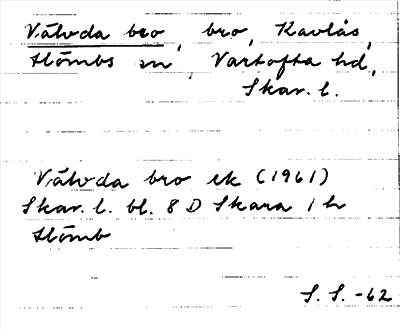 Vålvda bro, bro, Kavlås,
Slömbs sn, Vartofta hd,
Skar. l.
Vålvda bro ek (1961)
Skar. l. bl. 8 D Skara 1 h
Slömb
S. S. -62